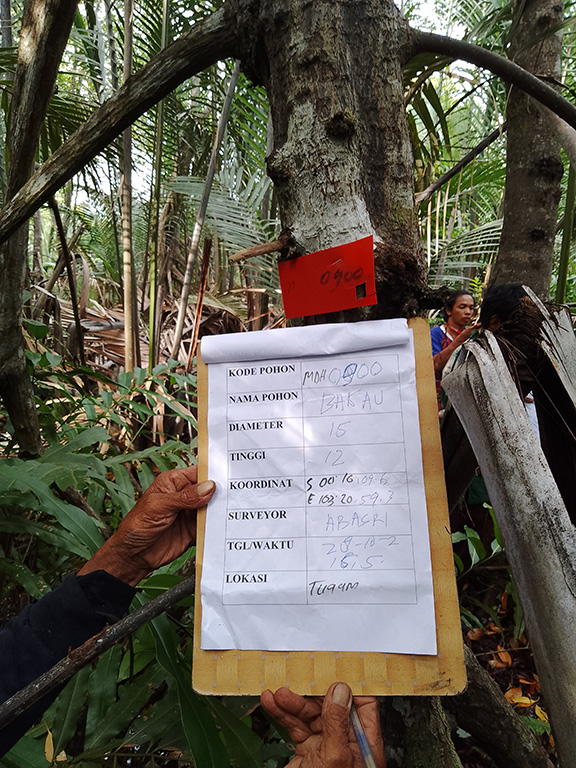 0900
KODE POHON MDA 0900
NAMA POHON BAKAU
DIAMETER 15
TINGGI 12
KOORDINAT S 00.16.09.6
E 103.20.59.3
SURVEYOR ABASRI
TGL/WAKTU 28-10-2
16,5.
LOKASI Tugam